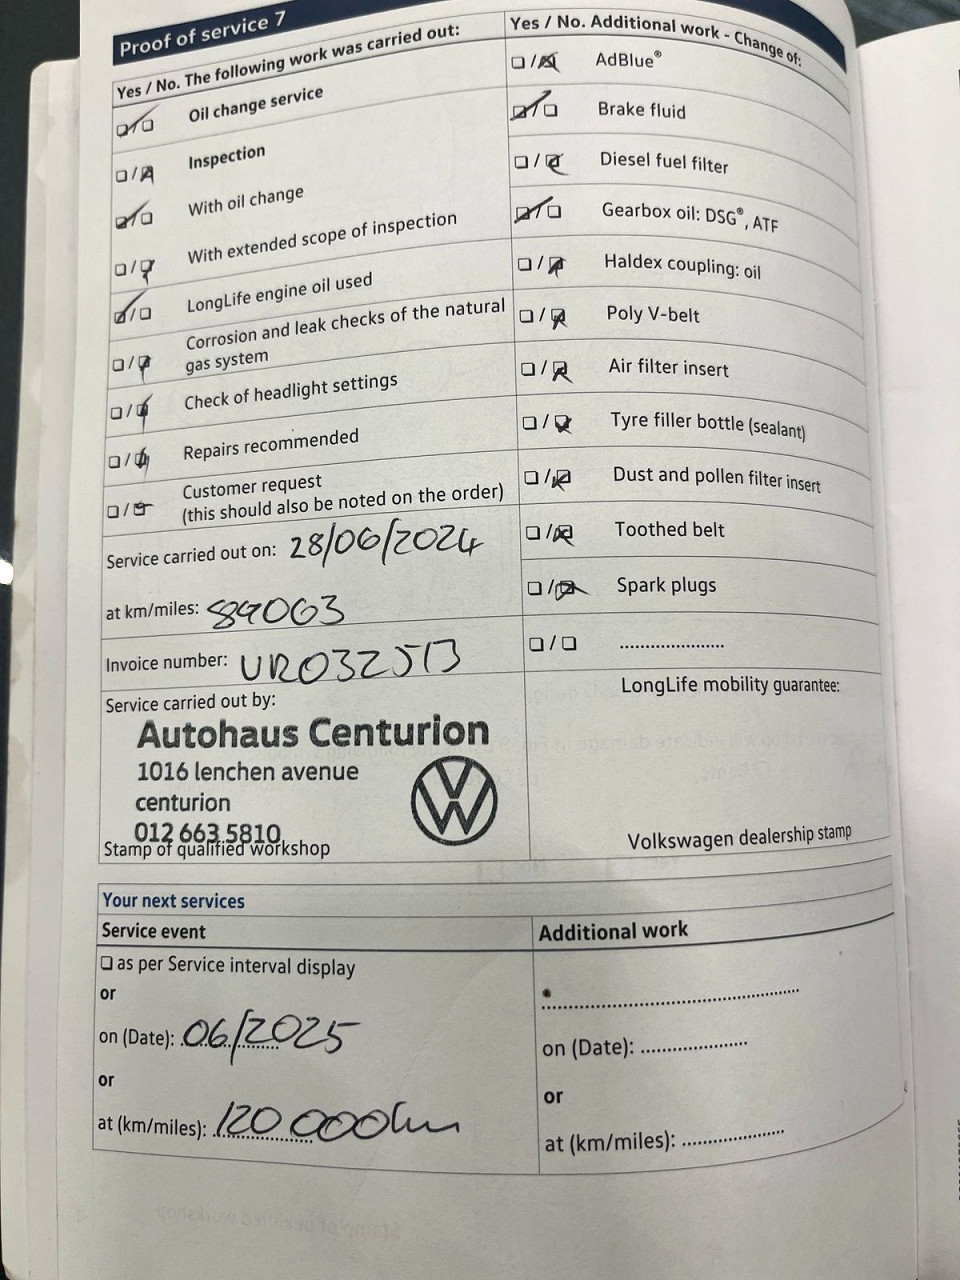 Proof of service 7
Yes / No. The following work was carried out:
Oil change service
Inspection
With oil change
With extended scope of inspection
LongLife engine oil used
Corrosion and leak checks of the natural
gas system
Check of headlight settings
Repairs recommended
Customer request
(this should also be noted on the order)
Service carried out on: 28/06/2024
at km/miles: 89063
Invoice number: URO32513
Service carried out by:
Autohaus Centurion
1016 lenchen avenue
centurion
012 663 5810
Stamp of qualified workshop
Yes / No. Additional work - Change of:
AdBlue®
Brake fluid
Diesel fuel filter
Gearbox oil: DSG®, ATF
Haldex coupling: oil
Poly V-belt
Air filter insert
Tyre filler bottle (sealant)
Dust and pollen filter insert
Toothed belt
Spark plugs
LongLife mobility guarantee:
Volkswagen dealership stamp
Your next services
Service event
as per Service interval display
or
on (Date): 06/2025
or
at (km/miles): 120 000km
Additional work
on (Date):
or
at (km/miles):